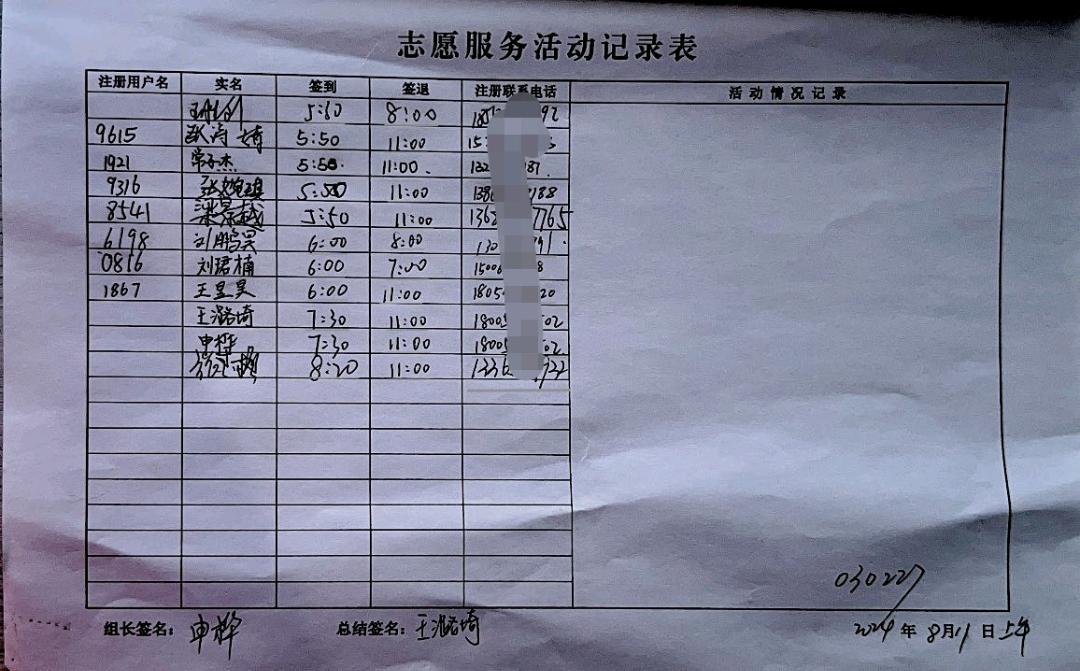 志愿服务活动记录表
注册用户名 实名 签到 签退 注册联系电话 活动情况记录
5:50 8:00 92
9615 5:50 11:00 15
1921 常子杰 5:50. 11:00. 132 81.
9316 5:50 11:00 138 188
8541 梁景越 5:50 11:00 136 7765
6198 刘鹏昊 6:00 8:00 130 91.
0816 刘珺楠 6:00 7:00 1500 8
1867 王昱昊 6:00 11:00 1805 20
王潞琦 7:30 11:00 1800 502
申桦 7:30 11:00 1800 502
8:20 11:00 133 722
030227
组长签名： 申桦 总结签名： 王潞琦 2024 年 8 月 11 日 上午